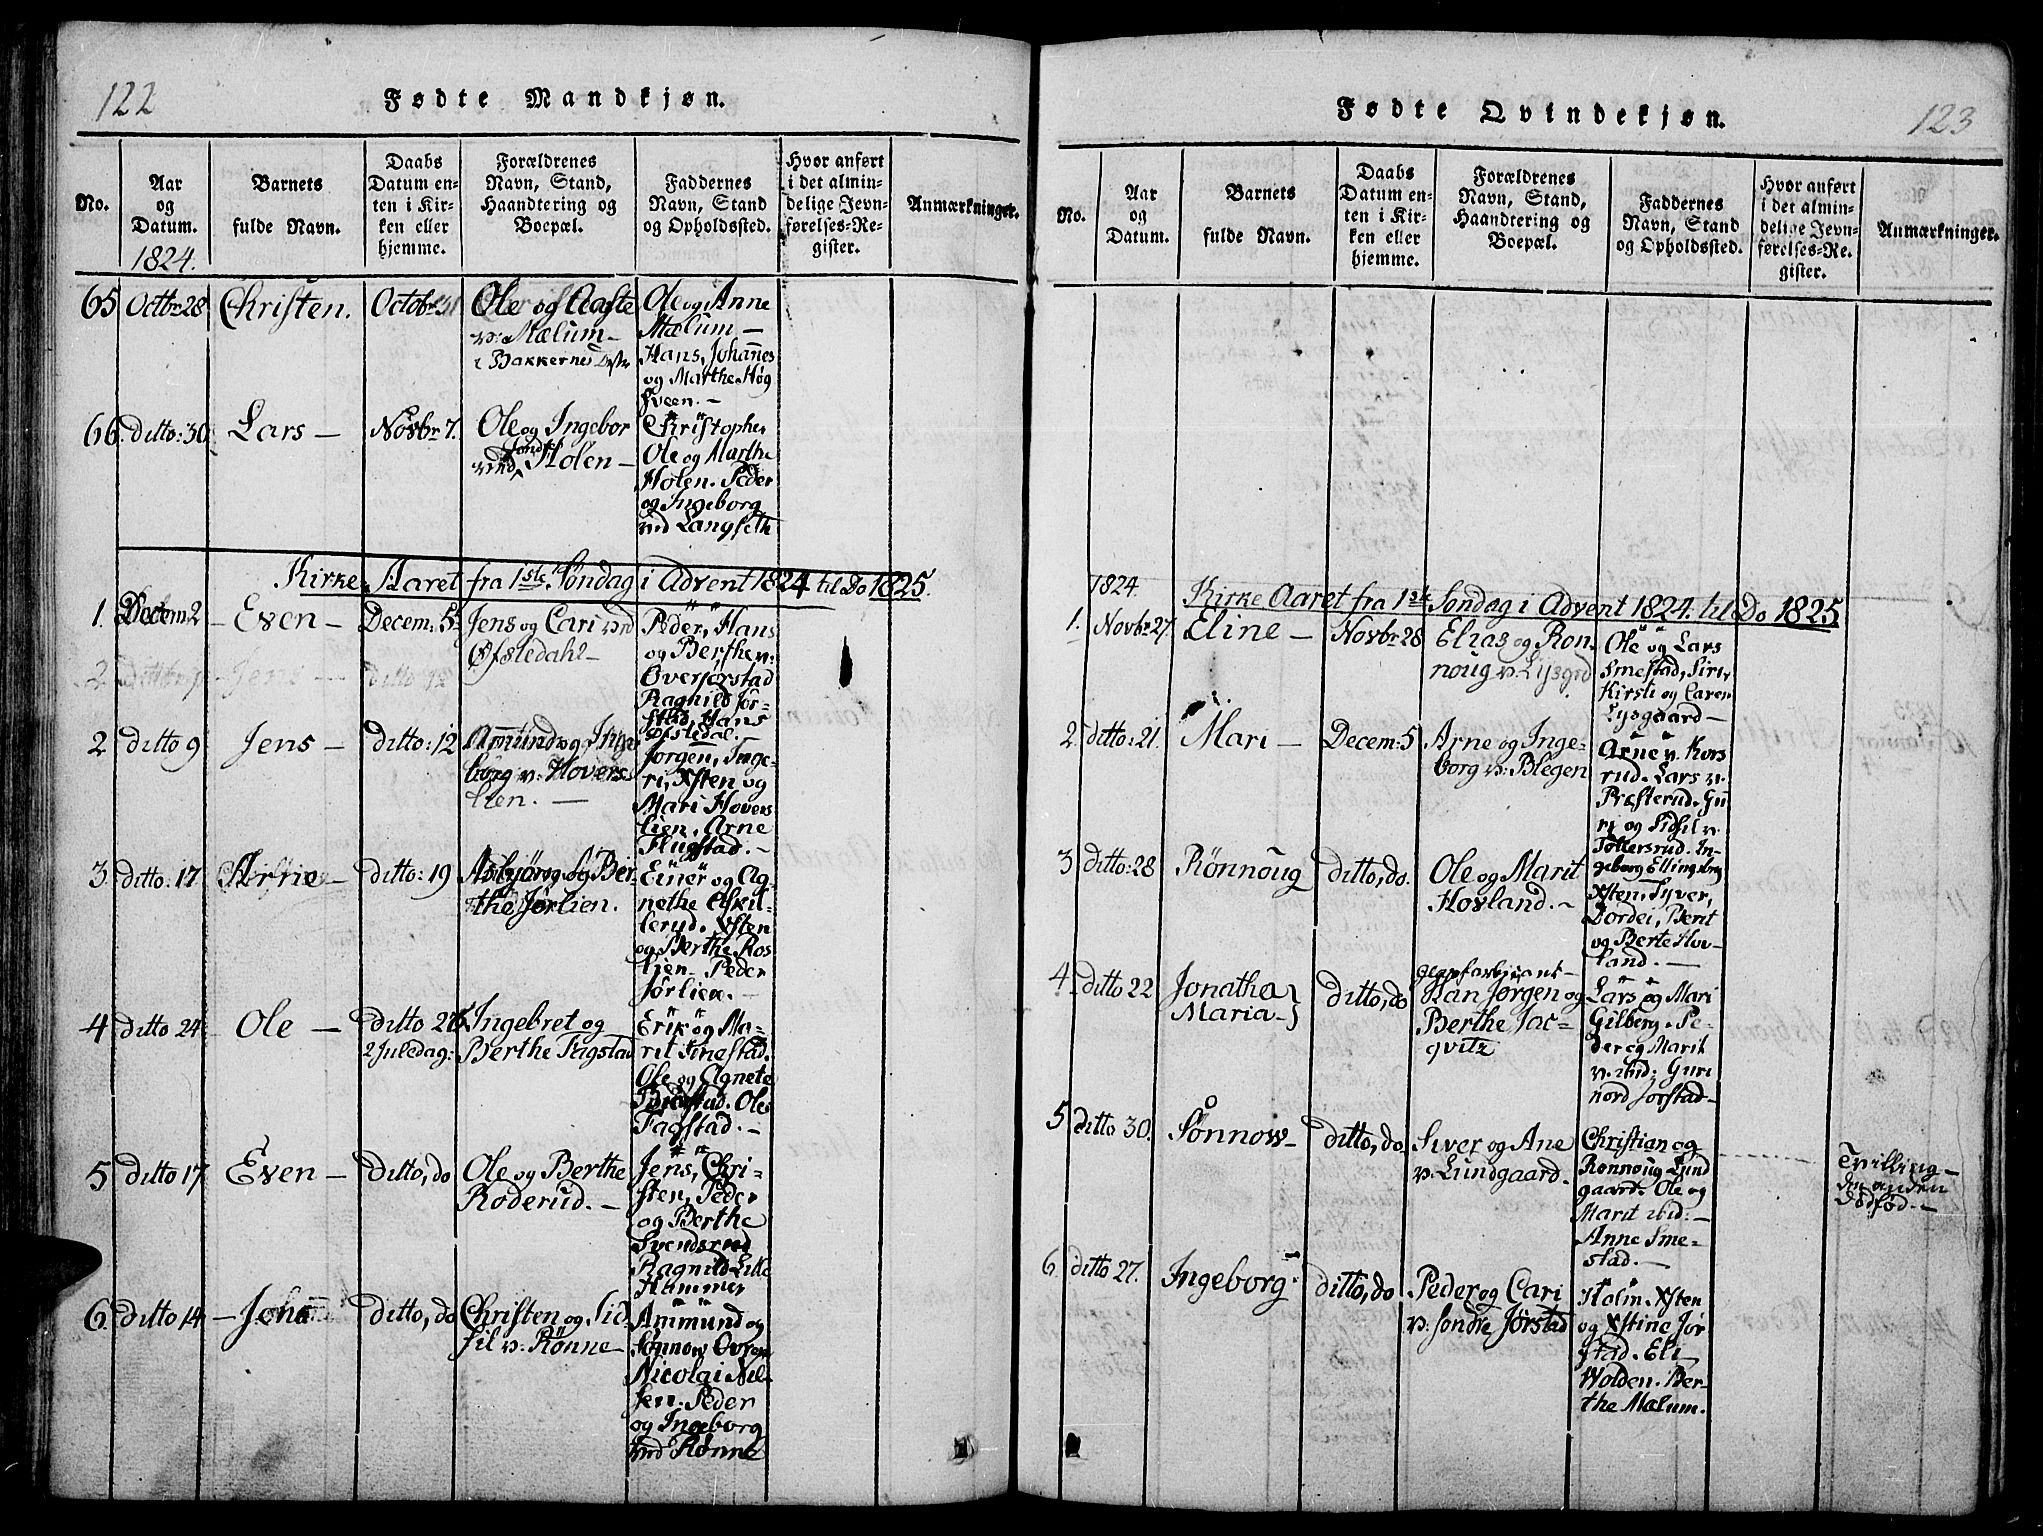 122
Fødte Mandkjøn.
No.
Aar
og
Datum.
1824.
Barnets
fulde Navn.
Daabs
Datum en-
ten i Kir-
ken eller
hjemme.
Forældrenes
Navn, Stand,
Haandtering og
Boepæl.
Faddernes
Navn, Stand
og Opholdssted.
Hvor anført
i det almin-
delige Jevn-
førelses-Re-
gister.
Anmærkninger.
65
Octbr 28
Christen.
Octobr 31
Ole og Aaste
v: Mælum-
i Bakkernes
Ole og Anne
Mælum-
Hans, Johannes
og Marthe Høg
sveen.-
66.
ditto: 30.
Lars-
Novbr 7.
Ole og Ingebor
søndre
Holen-
Christopher
Ole og Marthe
Holen. Peder
og Ingeborg
Langseth
Kirke Aaret fra 1ste Søndag i Advent 1824 til Do 1825.
1.
Decem 2
Even-
Decem: 5
Jens og Cari
Øfsledahl-
Peder, Hans
og Berthe v:
Overjørstad
Ragnild Jør-
stad, Hans
Øfsledal.-
2
Jens-
ditto 12
2
ditto 9
Jens-
ditto: 12
Amund og Inge
borg v: Hovers
lien.-
Jørgen, Inge-
ri, Xsten og
Mari Hovers
lien. Arne
Flugstad.-
3.
ditto: 17
Arne-
ditto: 19
Asbjørg og Ber-
the Jørlien.
Einer og Ag-
nethe Eskil-
lerud. Xsten
og Berthe Ros
lien- Peder
Jørlien.-
4
ditto 24
Ole-
ditto 26
2 Juledag:
Ingebret og
Berthe Fagstad
Erik og Ma-
rit Smestad.
Ole og Agnete
Ole
Fagstad.-
5
ditto 17
Even-
ditto, do
Ole og Berthe
Roderud.-
Jens, Chri-
sten, Peder
og Berthe
Svendsrud
Ragnild Lille
Hammer
6.
ditto 14
ditto, do
Christen og Sid
sil v: Rønne-
Ammund og
Sønnow
Nicolai Niel
sen. Peder
og Ingeborg
Rønne
123
Fødte Qvindekjøn.
No.
Aar
og
Datum.
Barnets
fulde Navn.
Daabs
Datum en-
ten i Kir-
ken eller
hjemme.
Forældrenes
Navn, Stand,
Haandtering og
Boepæl.
Faddernes
Navn, Stand
og Opholdssted.
Hvor anført
i det almin-
delige Jevn-
førelses-Re-
gister.
Anmærkninger.
1824.
Kirke Aaret fra 1ste Søndag i Advent 1824. til Do 1825
1.
Novbr 27.
Eline-
Novbr 28
Elias og Ron-
noug v: Lysgrd
Ole og Lars
Smestad, Siri,
Kirsti og Caren
Lysgaard-
2.
ditto: 21.
Mari-
Decem: 5
Arne og Inge-
borg v: Blegen
Arne v. Kors
rud. Lars v.
Præsterud. Gu
ri og Sidsil v.
Tollersrud. In-
geborg Ellingsbrg
3
ditto: 28
Rønnoug
ditto, do.
Ole og Marit
Hovland.-
Xsten, Syver,
Dordei, Berit
og Berte Hov-
land.-
4.
ditto 22
Jonatha
Maria-}
ditto, do
Han Jørgen og
Berthe Jac-
qvitz
Lars og Mari
Gilberg. Pe-
der og Marit
v. ibid: Guri
nord Jørstad-
5
ditto 30.
Sønnow-
ditto, do
Siver og Ane
v: Lundgaard.
Christian og
Ronnoug Lund
gaard. Ole og
Marit ibid:-
Anne Sme-
stad.-
Tvilling-
den anden
Dødfød.-
6
ditto 27.
Ingeborg
ditto, do
Peder og Cari
v: Søndre Jørstad
Holm. Xsten
og Xstine Jør
stad. Eli
Wolden. Ber-
the Mælum.